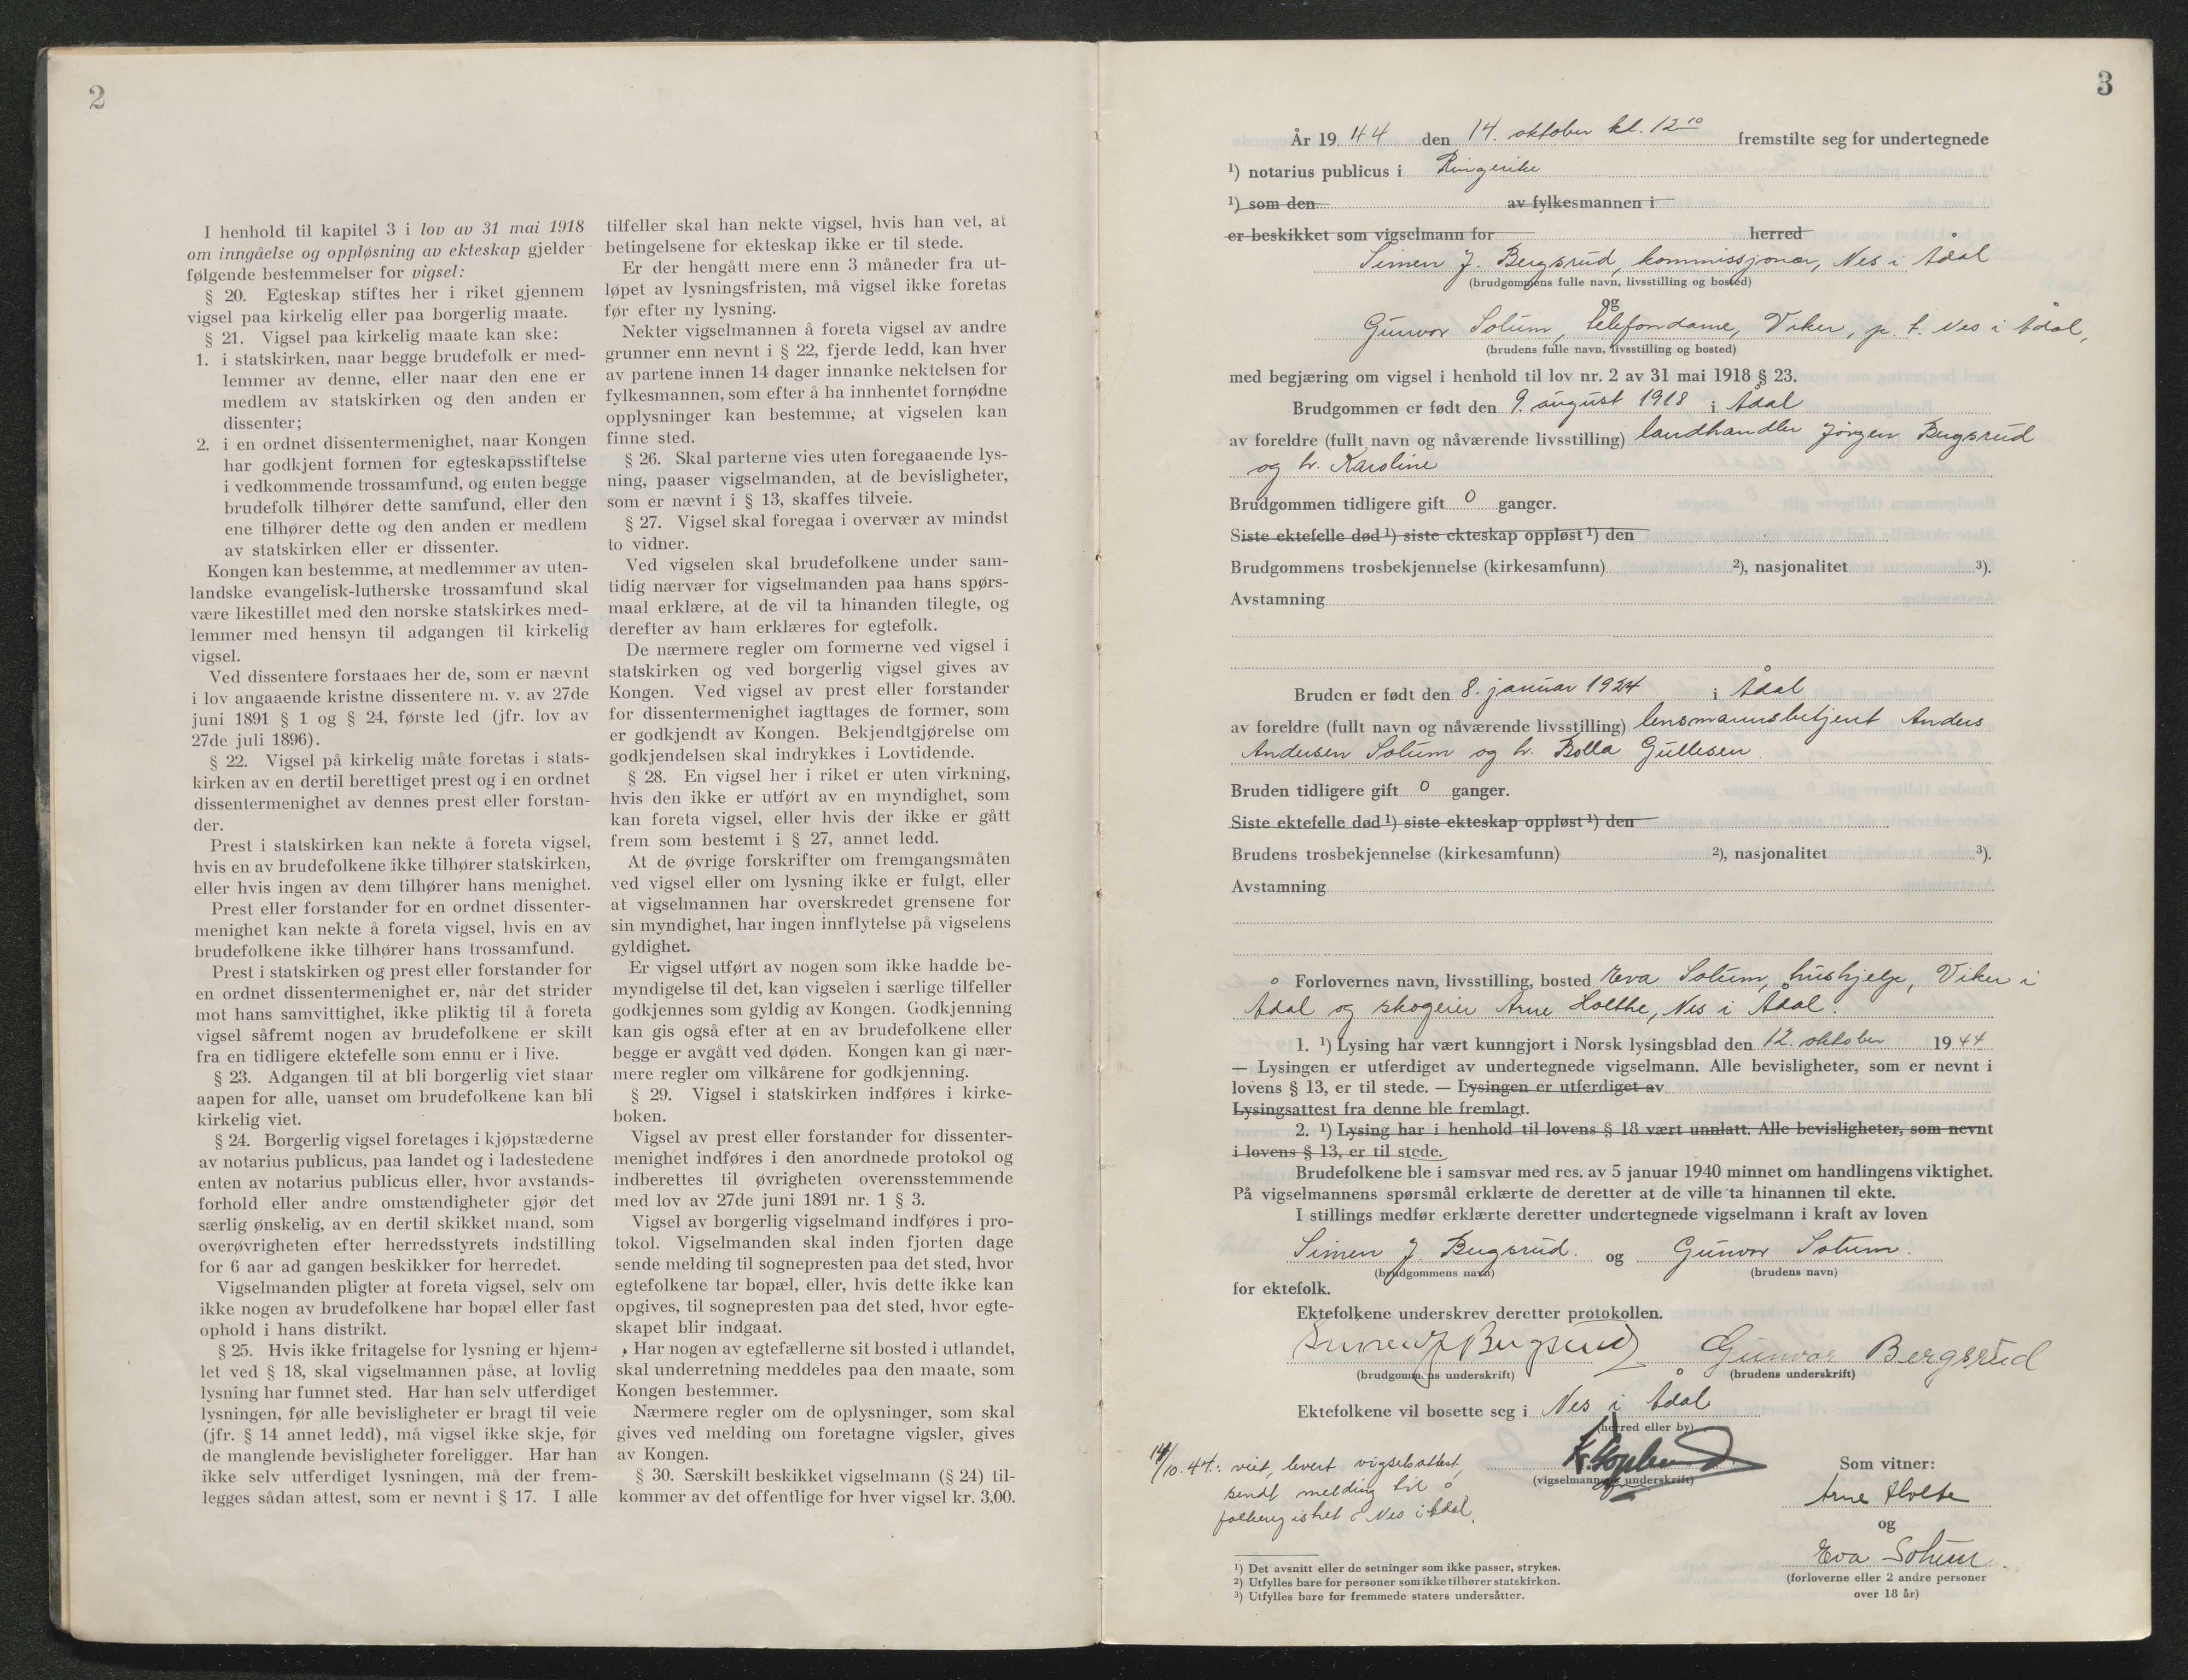 2
I henhold til kapitel 3 i lov av 31 mai 1918
om inngåelse og oppløsning av ekteskap gjelder
følgende bestemmelser for vigsel:
§ 20. Egteskap stiftes her i riket gjennem
vigsel paa kirkelig eller paa borgerlig maate.
§ 21. Vigsel paa kirkelig maate kan ske:
1. i statskirken, naar begge brudefolk er med-
lemmer av denne, eller naar den ene er
medlem av statskirken og den anden er
dissenter;
2. i en ordnet dissentermenighet, naar Kongen
har godkjent formen for egteskapsstiftelse
i vedkommende trossamfund, og enten begge
brudefolk tilhører dette samfund, eller den
ene tilhører dette og den anden er medlem
av statskirken eller er dissenter.
Kongen kan bestemme, at medlemmer av uten-
landske evangelisk-lutherske trossamfund skal
være likestillet med den norske statskirkes med-
lemmer med hensyn til adgangen til kirkelig
vigsel.
Ved dissentere forstaaes her de, som er nævnt
i lov angaaende kristne dissentere m. v. av 27de
juni 1891 § 1 og § 24, første led (jfr. lov av
27de juli 1896).
§ 22. Vigsel på kirkelig måte foretas i stats-
kirken av en dertil berettiget prest og i en ordnet
dissentermenighet av dennes prest eller forstan-
der.
Prest i statskirken kan nekte å foreta vigsel,
hvis en av brudefolkene ikke tilhører statskirken,
eller hvis ingen av dem tilhører hans menighet.
Prest eller forstander for en ordnet dissenter-
menighet kan nekte å foreta vigsel, hvis en av
brudefolkene ikke tilhører hans trossamfund.
Prest i statskirken og prest eller forstander for
en ordnet dissentermenighet er, når det strider
mot hans samvittighet, ikke pliktig til å foreta
vigsel såfremt nogen av brudefolkene er skilt
fra en tidligere ektefelle som ennu er i live.
§ 23. Adgangen til at bli borgerlig viet staar
aapen for alle, uanset om brudefolkene kan bli
kirkelig viet.
§ 24. Borgerlig vigsel foretages i kjøpstæderne
av notarius publicus, paa landet og i ladestedene
enten av notarius publicus eller, hvor avstands-
forhold eller andre omstændigheter gjør det
særlig ønskelig, av en dertil skikket mand, som
overøvrigheten efter herredsstyrets indstilling
for 6 aar ad gangen beskikker for herredet.
Vigselmanden pligter at foreta vigsel, selv om
ikke nogen av brudefolkene har bopæl eller fast
ophold i hans distrikt.
§ 25. Hvis ikke fritagelse for lysning er hjem-
let ved § 18, skal vigselmannen påse, at lovlig
lysning har funnet sted. Har han selv utferdiget
lysningen, før alle bevisligheter er bragt til veie
(jfr. § 14 annet ledd), må vigsel ikke skje, før
de manglende bevisligheter foreligger. Har han
ikke selv utferdiget lysningen, må der frem-
legges sådan attest, som er nevnt i § 17. I alle
tilfeller skal han nekte vigsel, hvis han vet, at
betingelsene for ekteskap ikke er til stede.
Er der hengått mere enn 3 måneder fra ut-
løpet av lysningsfristen, må vigsel ikke foretas
før efter ny lysning.
Nekter vigselmannen å foreta vigsel av andre
grunner enn nevnt i § 22, fjerde ledd, kan hver
av partene innen 14 dager innanke nektelsen for
fylkesmannen, som efter å ha innhentet fornødne
opplysninger kan bestemme, at vigselen kan
finne sted.
§ 26. Skal parterne vies uten foregaaende lys-
ning, paaser vigselmanden, at de bevisligheter,
som er nævnt i § 13, skaffes tilveie.
§ 27. Vigsel skal foregaa i overvær av mindst
to vidner.
Ved vigselen skal brudefolkene under sam-
tidig nærvær for vigselmanden paa hans spørs-
maal erklære, at de vil ta hinanden tilegte, og
derefter av ham erklæres for egtefolk.
De nærmere regler om formerne ved vigsel i
statskirken og ved borgerlig vigsel gives av
Kongen. Ved vigsel av prest eller forstander
for dissentermenighet iagttages de former, som
er godkjendt av Kongen. Bekjendtgjørelse om
godkjendelsen skal indrykkes i Lovtidende.
§ 28. En vigsel her i riket er uten virkning,
hvis den ikke er utført av en myndighet, som
kan foreta vigsel, eller hvis der ikke er gått
frem som bestemt i § 27, annet ledd.
At de øvrige forskrifter om fremgangsmåten
ved vigsel eller om lysning ikke er fulgt, eller
at vigselmannen har overskredet grensene for
sin myndighet, har ingen innflytelse på vigselens
gyldighet.
Er vigsel utført av nogen som ikke hadde be-
myndigelse til det, kan vigselen i særlige tilfeller
godkjennes som gyldig av Kongen. Godkjenning
kan gis også efter at en av brudefolkene eller
begge er avgått ved døden. Kongen kan gi nær-
mere regler om vilkårene for godkjenning.
§ 29. Vigsel i statskirken indføres i kirke-
boken.
Vigsel av prest eller forstander for dissenter-
menighet indføres i den anordnede protokol og
indberettes til øvrigheten overensstemmende
med lov av 27de juni 1891 nr. 1 § 3.
Vigsel av borgerlig vigselmand indføres i pro-
tokol. Vigselmanden skal inden fjorten dage
sende melding til sognepresten paa det sted, hvor
egtefolkene tar bopæl, eller, hvis dette ikke kan
opgives, til sognepresten paa det sted, hvor egte-
skapet blir indgaat.
Har nogen av egtefællerne sit bosted i utlandet,
skal underretning meddeles paa den maate, som
Kongen bestemmer.
Nærmere regler om de oplysninger, som skal
gives ved melding om foretagne vigsler, gives
av Kongen.
§ 30. Særskilt beskikket vigselmann (§ 24) til-
kommer av det offentlige for hver vigsel kr. 3,00.
3
År 1944 den 14. oktober kl. 12¹⁰ fremstilte seg for undertegnede
¹) notarius publicus i Ringerike
¹) som den av fylkesmannen i
er beskikket som vigselmann for herred
Simen J. Bergsrud, kommissjonær, Nes i Ådal
(brudgommens fulle navn, livsstilling og bosted)
og
Gunvor Solum, telefondame, Viker, p. t. Nes i Ådal,
(brudens fulle navn, livsstilling og bosted)
med begjæring om vigsel i henhold til lov nr. 2 av 31 mai 1918 § 23.
Brudgommen er født den 9. august 1918 i Ådal
av foreldre (fullt navn og nåværende livsstilling) landhandler Jørgen Bergsrud
og h. Karoline
Brudgommen tidligere gift 0 ganger.
Siste ektefelle død ¹) siste ekteskap oppløst ¹) den
Brudgommens trosbekjennelse (kirkesamfunn) ²), nasjonalitet ³).
Avstamning
Bruden er født den 8. januar 1924 i Ådal
av foreldre (fullt navn og nåværende livsstilling) lensmannsbetjent Anders
Andersen Solum og h. Bolla Gullesen.
Bruden tidligere gift 0 ganger.
Siste ektefelle død ¹) siste ekteskap oppløst ¹) den
Brudens trosbekjennelse (kirkesamfunn) ²), nasjonalitet ³).
Avstamning
Forlovernes navn, livsstilling, bosted Eva Solum, hushjelp, Viker i
Ådal og skogeier Arne Holthe, Nes i Ådal.
1. ¹) Lysing har vært kunngjort i Norsk lysingsblad den 12. oktober 1944
— Lysingen er utferdiget av undertegnede vigselmann. Alle bevisligheter, som er nevnt i
lovens § 13, er til stede. — Lysingen er utferdiget av
Lysingsattest fra denne ble fremlagt.
2. ¹) Lysing har i henhold til lovens § 18 vært unnlatt. Alle bevisligheter, som nevnt
i lovens § 13, er til stede.
Brudefolkene ble i samsvar med res. av 5 januar 1940 minnet om handlingens viktighet.
På vigselmannens spørsmål erklærte de deretter at de ville ta hinannen til ekte.
I stillings medfør erklærte deretter undertegnede vigselmann i kraft av loven
Simen J. Bergsrud. og Gunvor Solum.
(brudgommens navn) (brudens navn)
for ektefolk.
Ektefolkene underskrev deretter protokollen.
Simen J Bergsrud Gunvor Bergsrud
(brudgommens underskrift) (brudens underskrift)
Ektefolkene vil bosette seg i Nes i Ådal
(herred eller by)
14/10.44.: viet, levert vigselsattest,
sendt melding til
folkeregistret i Nes i Ådal.
(vigselmannens underskrift)
Som vitner:
Arne Holte
og
Eva Solum
(forloverne eller 2 andre personer
over 18 år)
¹) Det avsnitt eller de setninger som ikke passer, strykes.
²) Utfylles bare for personer som ikke tilhører statskirken.
³) Utfylles bare for fremmede staters undersåtter.